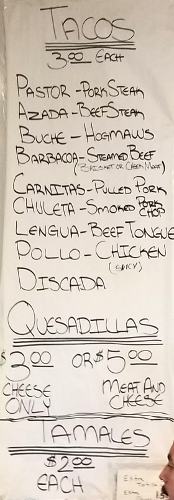 TACOS
3.00 EACH
PASTOR-PORK STEAK
AZADA-BEEF STEAK
BUCHE-HOGMAWS
BARBACOA-STEAMED BEEF
(BRISKET OR CHEEK MEAT)
CARNITAS-PULLED PORK
CHULETA-SMOKED PORK CHOP
LENGUA-BEEF TONGUE
POLLO-CHICKEN
(SPICY)
DISCADA
QUESADILLAS
$3.00 OR $5.00
CHEESE ONLY MEAT AND CHEESE
TAMALES
$2.00
EACH